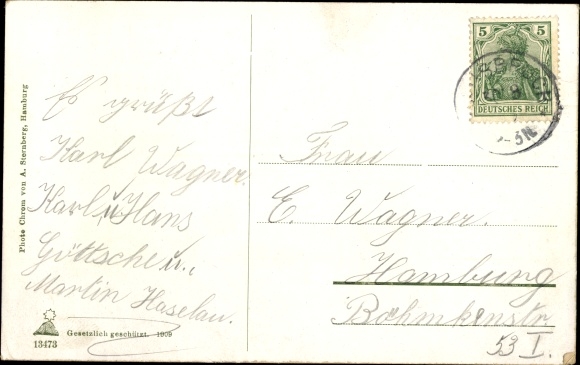 Photo Chrom von A. Sternberg, Hamburg
Es grüßt
Karl Wagner.
Karl u. Hans
Göttsche u.
Martin Haselau.
Gesetzlich geschützt. 1909
13473
5 5
DEUTSCHES REICH
Frau
E. Wagner.
Hamburg
Böhmkenstr
53 I.